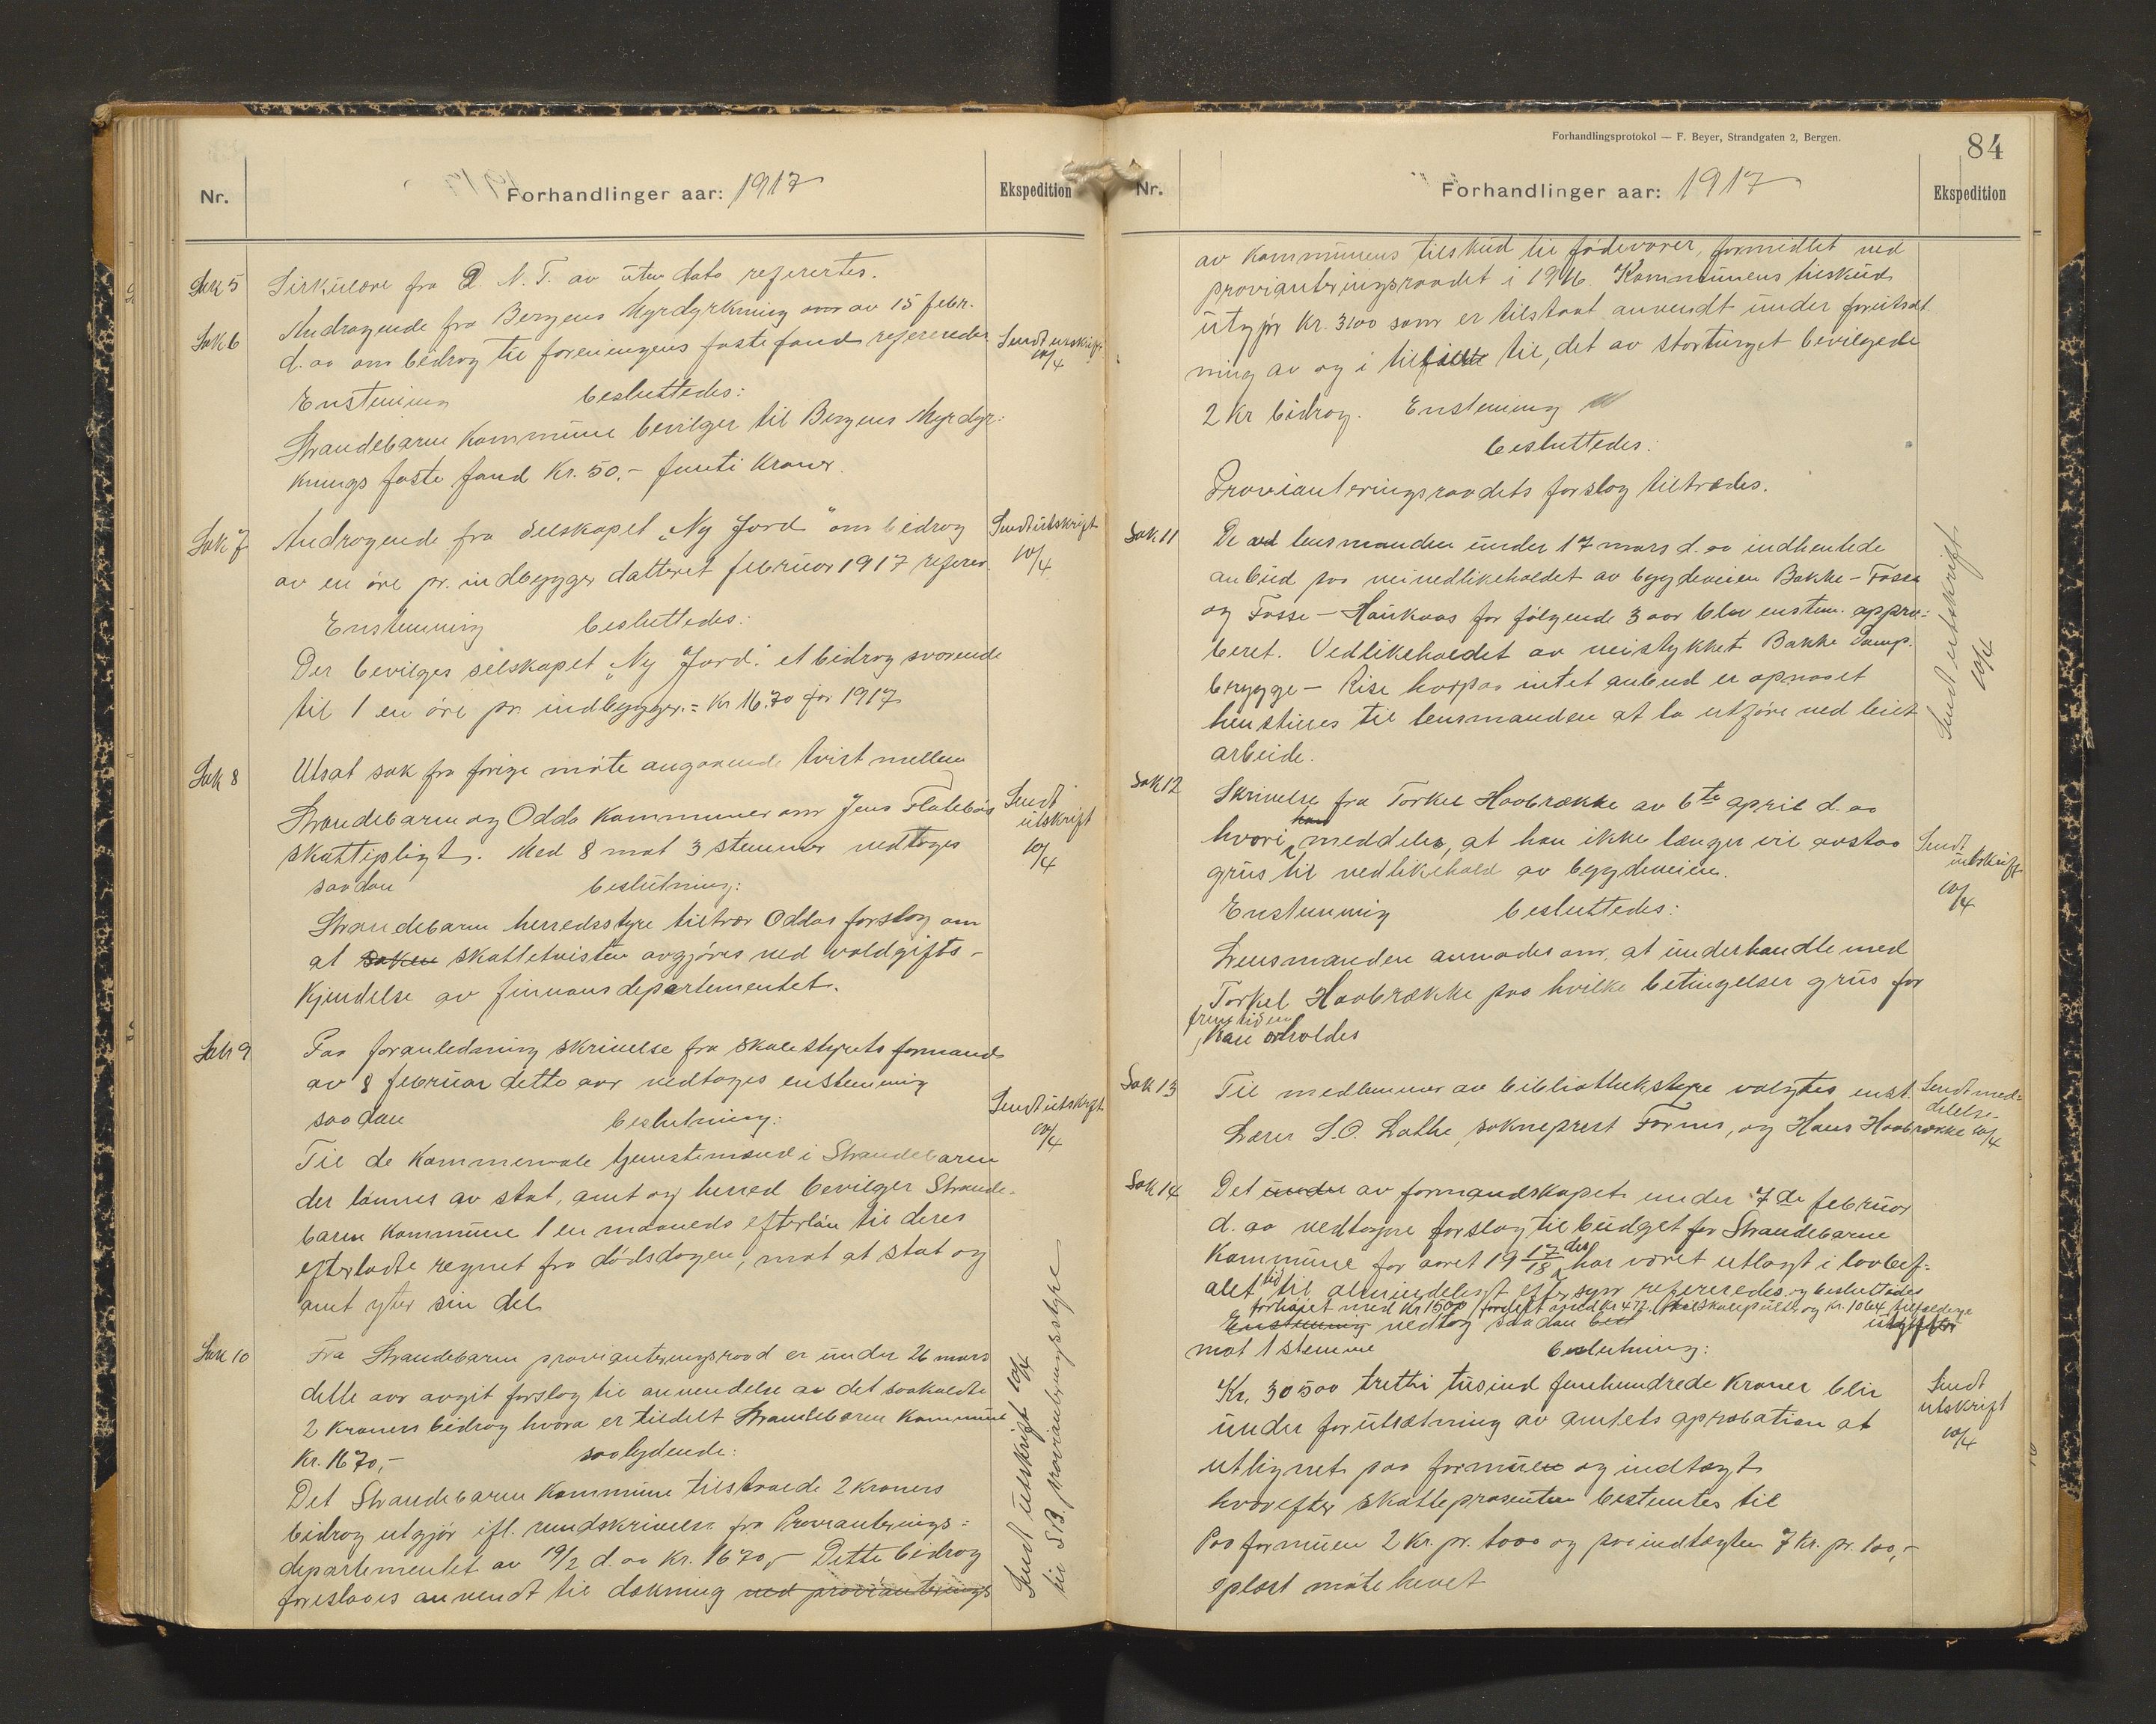 Nr.
Forhandlinger aar: 1917
Ekspedition
Sak 5
Sirkulære fra D. N. T. av uten dato refertes.
Sak 6
Andragende fra Bergens Myrdyrkning av 15 febr.
d. aa om bidrag til foreningens faste fond refereredes
Sendt utskrift
10/4
Enstemmig besluttedes:
Strandebarm kommune bevilger til Bergens Myrdyr-
knings faste fond Kr. 50,- femti kroner.
Sak 7
Andragende fra Selskapet "Ny Jord" om bidrag
av en øre pr. indbygger datteret februar 1917 referer.
Sendt utskrift
10/4
Enstemmig besluttedes:
Der bevilges selskapet "Ny Jord" et bidrag svarende
til 1 en øre pr. indbygger. = Kr 16.70 for 1917
Sak 8
Utsat sak fra forige møte angaaende tvist mellem
Strandebarm og Odda kommuner om Jens Flatebøs
skattepligt. Med 8 mot 3 stemmer vedtoges
Sendt
utskrift
10/4
saadan beslutning:
Strandebarm herredsstyre tiltrær Oddas forslag om
at saken skattetvisten avgjøres ved voldgifts-
kjendelse av finnansdepartementet.
Sak 9
Paa foranledning skrivelse fra skolestyrets formand
av 8 februar dette aar vedtoges enstemmig
saadan beslutning:
Sendt utskrift
10/4
Til de kommunale tjenestemænd i Strandebarm
der lønnes av stat, amt og herred bevilger Strande-
barm kommune 1 en maaneds efterløn til deres
efterladte regnet fra dødsdagen, mot at stat og
amt yter sin del
Sak 10
Fra Strandebarm provianteringsraad er under 26 mars
dette aar avgit forslag til anvendelse av det saakaldte
2 kroners bidrag hvora er tildelt Strandebarm kommune
Kr. 1670,- saalydende:
Det Strandebarm kommune tilstaaede 2 kroners
bidrag utgjør ifl. rundskrivelse fra Provianterings-
departementet av 19/2 d. aa Kr. 1670,- Dette bidrag
foreslaaes anvendt til dækning ved provianterings
Sendt utskrift 10/4
til S.B. provianteringsstyre
Forhandlingsprotokol — F. Beyer, Strandgaten 2, Bergen.
84
Nr.
Forhandlinger aar: 1917
Ekspedition
av kommunens tilskud til fødevarer, formidlet ved
provianteringsraadet i 1916. Kommunens tilskud
utgjør Kr. 3100 som er tilstaat anvendt under forutsæt
ning av og i til, det av stortinget bevilgede
2 kr bidrag. Enstemmig
besluttedes:
Provianteringsraadets forslag tiltrædes.
Sak 11
De ved lensmanden under 17 mars d. aa indhentede
anbud paa veivedlikeholdet av bygdeveien Bakke - Fosse
og Fosse - Haukaas for følgende 3 aar blev enstem. appro-
beret. Vedlikeholdet av veistykket Bakke Damp.
brygge - Rise hvorpaa intet anbud er opnaaet
henstilles til lensmanden at la utføre ved leiet
arbeide.
Sendt utskrift
10/4
Sak 12
Skrivelse fra Torkel Haabrække av 6te april d. aa
hvori han meddeler, at han ikke længer vil avstaa
grus til vedlikehold av bygdeveien.
Sendt
utskrift
10/4
Enstemmig besluttedes:
Lensmanden anmodes om, at underhandle med
Torkel Haabrække paa hvilke betingelser grus for
fremtiden
kan erholdes
Sak 13
Til medlemmer av bibliotheksstyre valgtes enst.
Lærer S.O. Lothe, sokneprest Formo, og Hans Haabrække
Sendt med-
delelse
10/4
Sak 14
Det under av formandskapet under 7de februar
d. aa vedtagne forslag til budget for Strandebarm
kommune for aaret 1917/18 der har været utlagt i lovbef-
alet tid til almindeligt eftersyn refereredes og besluttedes
forhøiet med Kr 1500 fordelt med Kr 477. og Kr. 1064 tilfældige
utgifter
Enstemmig vedtog saadan bes
mot 1 stemme beslutning:
Kr. 30500 tretti tusind femhundrede kroner blir
under forutsætning av amtets aprobation at
utlignet paa formuen og indtægt
hvorefter skatteprosenten bestemtes til
Paa formuen 2 kr. pr. 1000 og paa indtægten 7 kr. pr. 100,-
Sendt
utskrift
10/4
oplæst møte hævet